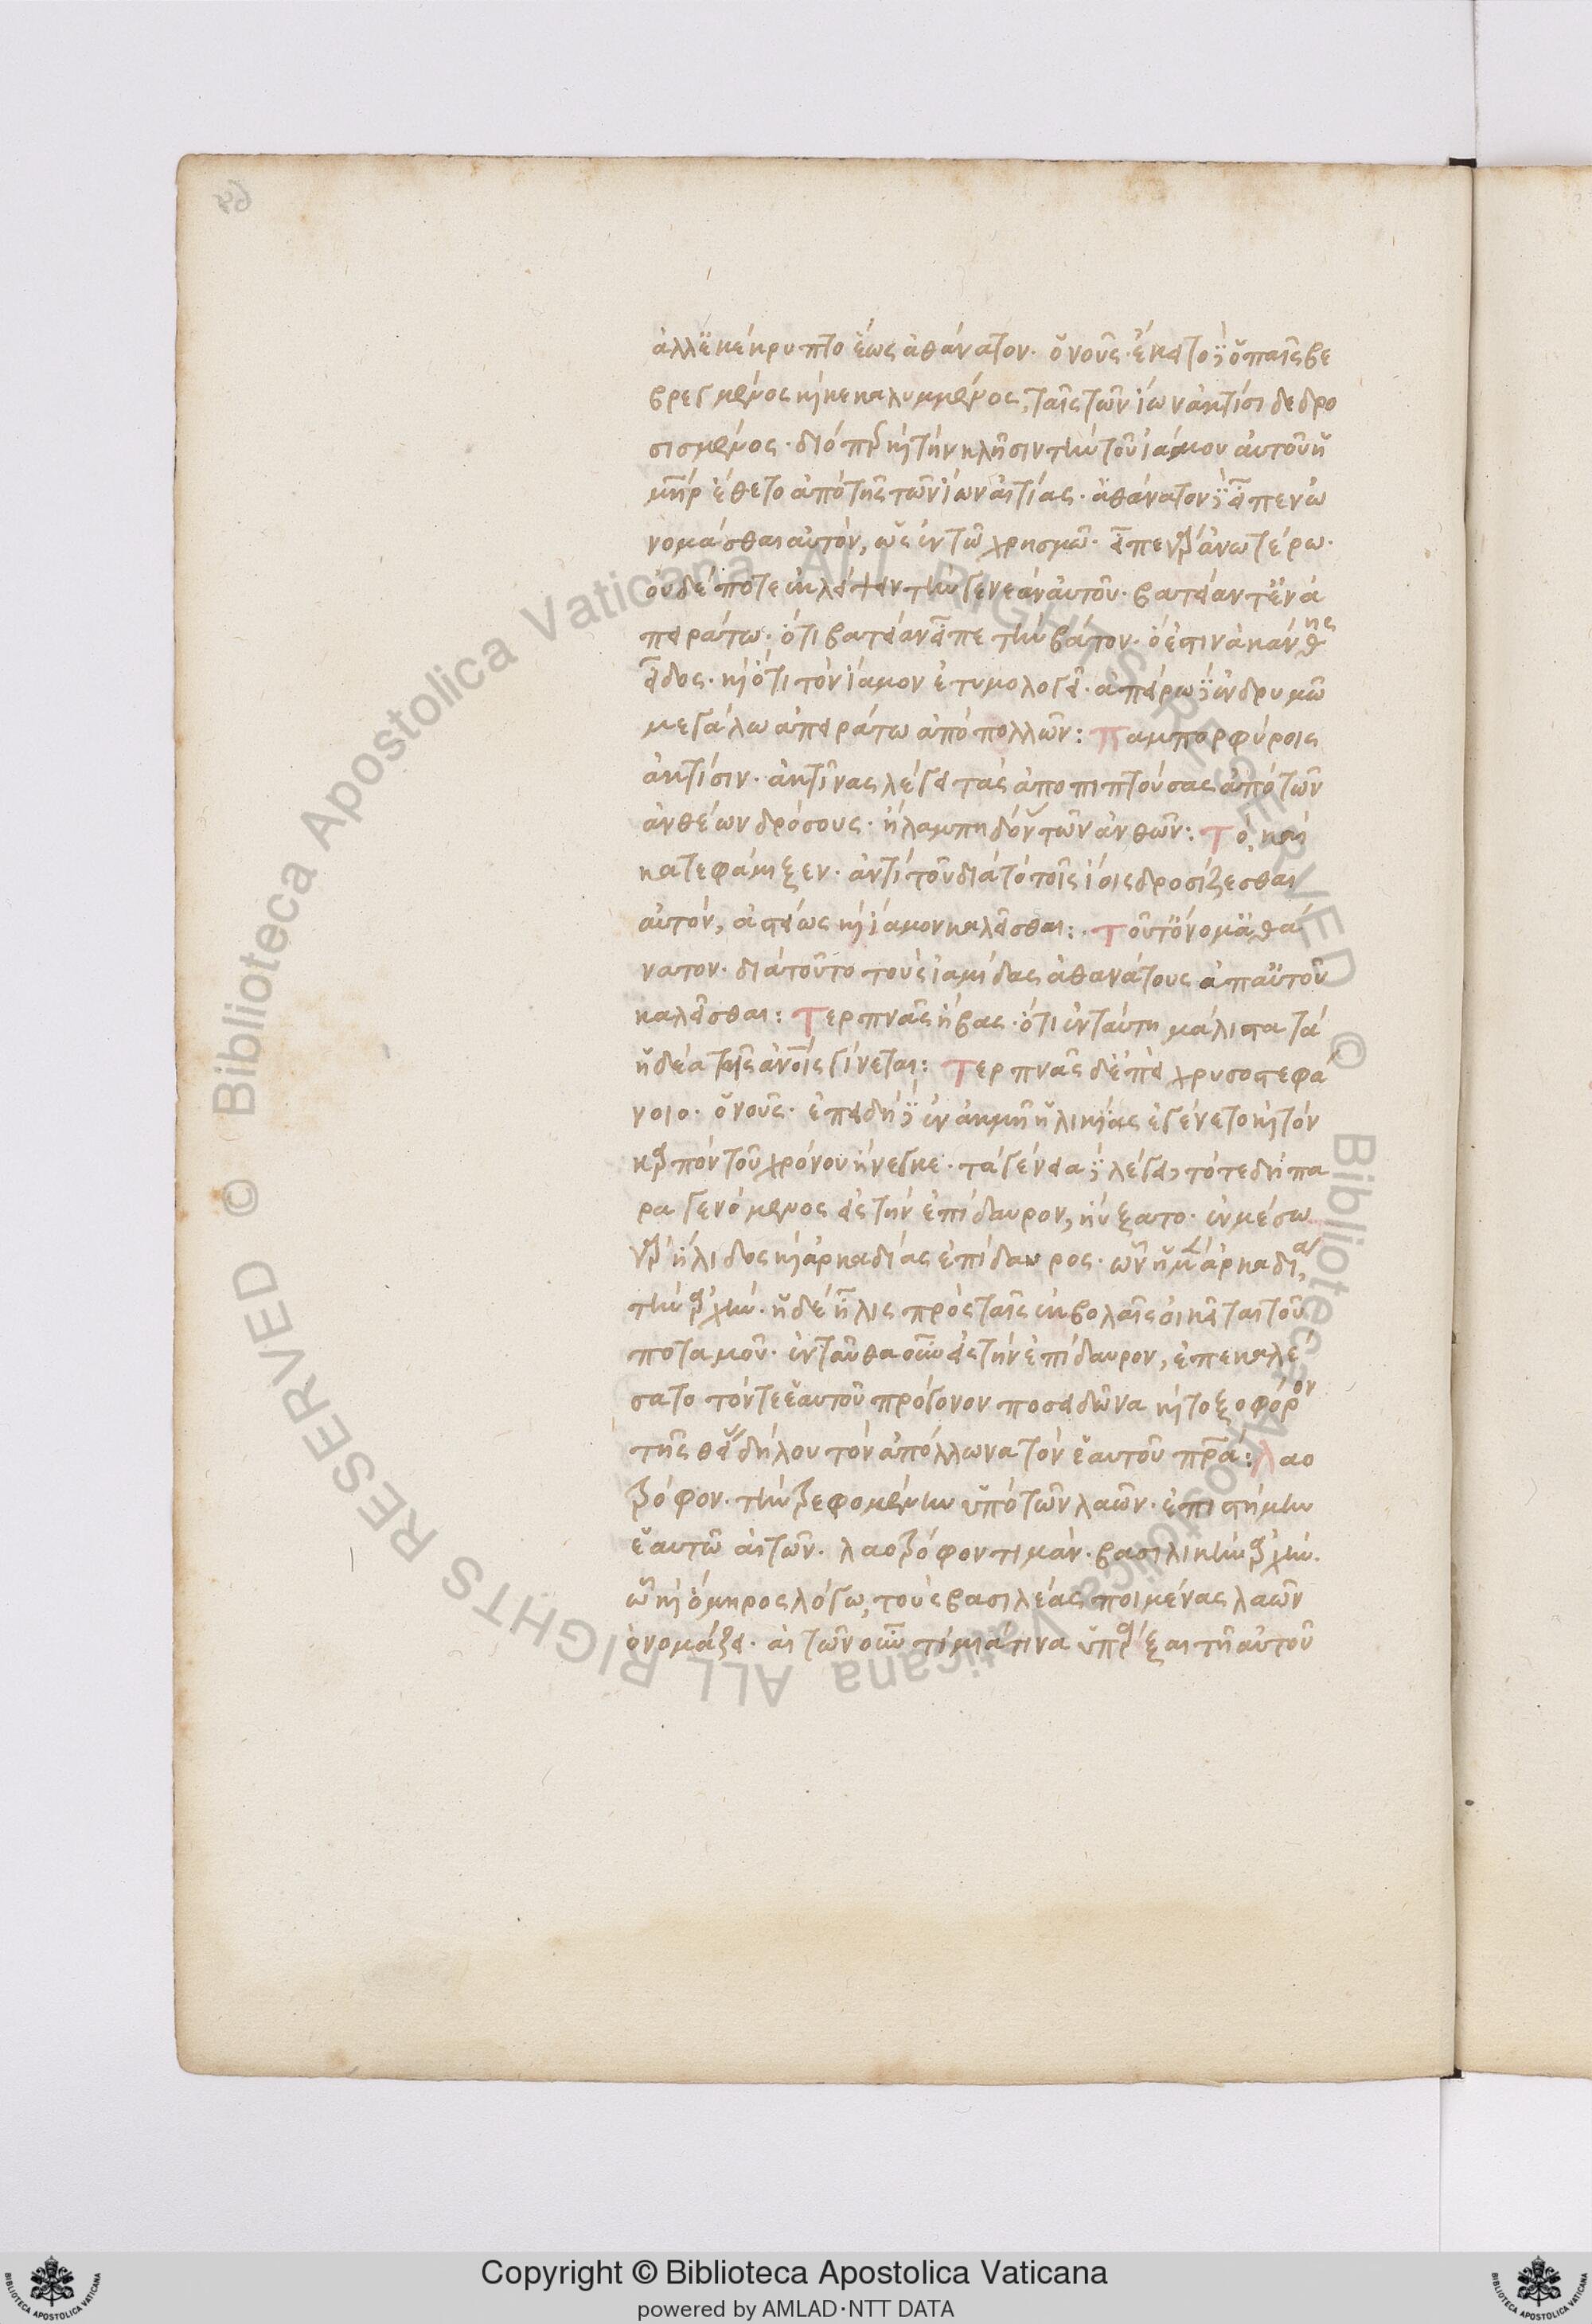 ἀλλ' ἐκέκρυπτο ἕως ἀθάνατον· ὁ νοῦς· ἔκειτο γὰρ ὁ παῖς βε
βρεγμένος καὶ κεκαλυμμένος, ταῖς τῶν ἴων ἀκτίσι δεδρο
σισμένος· διόπερ καὶ τὴν κλῆσιν τὴν τοῦ ἰάμου αὐτοῦ ἡ
μήτηρ ἔθετο ἀπὸ τῆς τῶν ἴων αἰτίας· ἀθάνατον γὰρ εἶπεν ὠ
νομάσθαι αὐτὸν, ὡς ἐν τῷ χρησμῷ· εἶπε γὰρ ἀνωτέρω·
οὐδέποτε ἐκλείψειν τὴν γενεὰν αὐτοῦ· βατείαν τ' ἐν ἀ
πειράτω· ὅτι βατείαν εἶπε τὴν βάτον· ὅ ἐστιν ἀκάνθης
εἶδος· καὶ ὅτι τὸν ἴαμον ἐτυμολογεῖ· ἀπείρω γὰρ ἐν δρυμῷ
μεγάλω ἀπειράτω ἀπὸ πολλῶν: Παμπορφύροις
ἀκτίσιν· ἀκτῖνας λέγει τὰς ἀποπιπτούσας ἀπὸ τῶν
ἀνθέων δρόσους· ἢ λαμπηδόνας τῶν ἀνθῶν: Τὸ, καὶ
κατεφάμιξεν· ἀντὶ τοῦ διὰ τὸ τοῖς ἴοις δροσίζεσθαι
αὐτὸν, ἀστείως καὶ ἴαμον καλεῖσθαι: Τοῦτ' ὄνομ' ἀθά
νατον· διὰ τοῦτο τοὺς ἰαμίδας ἀθανάτους ἀπ' αὐτοῦ
καλεῖσθαι: Τερπνᾶς ἥβας· ὅτι ἐν ταύτη μάλιστα τὰ
ἡδέα τοῖς ἀνοις γίνεται: Τερπνᾶς δ' ἐπεὶ χρυσοστεφά
νοιο· ὁ νοῦς· ἐπειδὴ γὰρ ἐν ἀκμῇ ἡλικίας ἐγένετο καὶ τὸν
καρπὸν τοῦ χρόνου ἤνεγκε· τὰ γένεια γὰρ λέγει, τότε δὴ πα
ραγενόμενος εἰς τὴν ἐπίδαυρον, ηὔξατο· ἐν μέσω
γὰρ ἤλιδος καὶ ἀρκαδίας ἐπίδαυρος· ὧν ἡ μὲν ἀρκαδία,
τὴν ἀρχήν· ἡ δὲ ἦλις πρὸς ταῖς ἐκβολαῖς οἰκεῖται τοῦ
ποταμοῦ· ἐνταῦθα οὖν εἰς τὴν ἐπίδαυρον, ἐπεκαλέ
σατο τόν τε ἑαυτοῦ πρόγονον ποσειδῶνα καὶ τοξοφόρον
τῆς θείας δήλου τὸν ἀπόλλωνα τὸν ἑαυτοῦ πρα: Λαο
τρόφον· τὴν τρεφομένην ὑπὸ τῶν λαῶν· ἐπιστήμην
ἑαυτῷ αἰτῶν· λαοτρόφον τιμάν· βασιλικὴν ἀρχήν·
ὧν καὶ ὅμηρος λόγω, τοὺς βασιλέας ποιμένας λαῶν
ὀνομάζει· αἰτῶν οὖν τιμιά τινα ὑπάρξαι τῇ αὐτοῦ
Copyright © Biblioteca Apostolica Vaticana
powered by AMLAD·NTT DATA
© Biblioteca Apostolica Vaticana ALL RIGHTS RESERVED
© Biblioteca Apostolica Vaticana ALL RIGHTS RESERVED
BIBLIOTECA APOSTOLICA VATICANA
BIBLIOTECA APOSTOLICA VATICANA